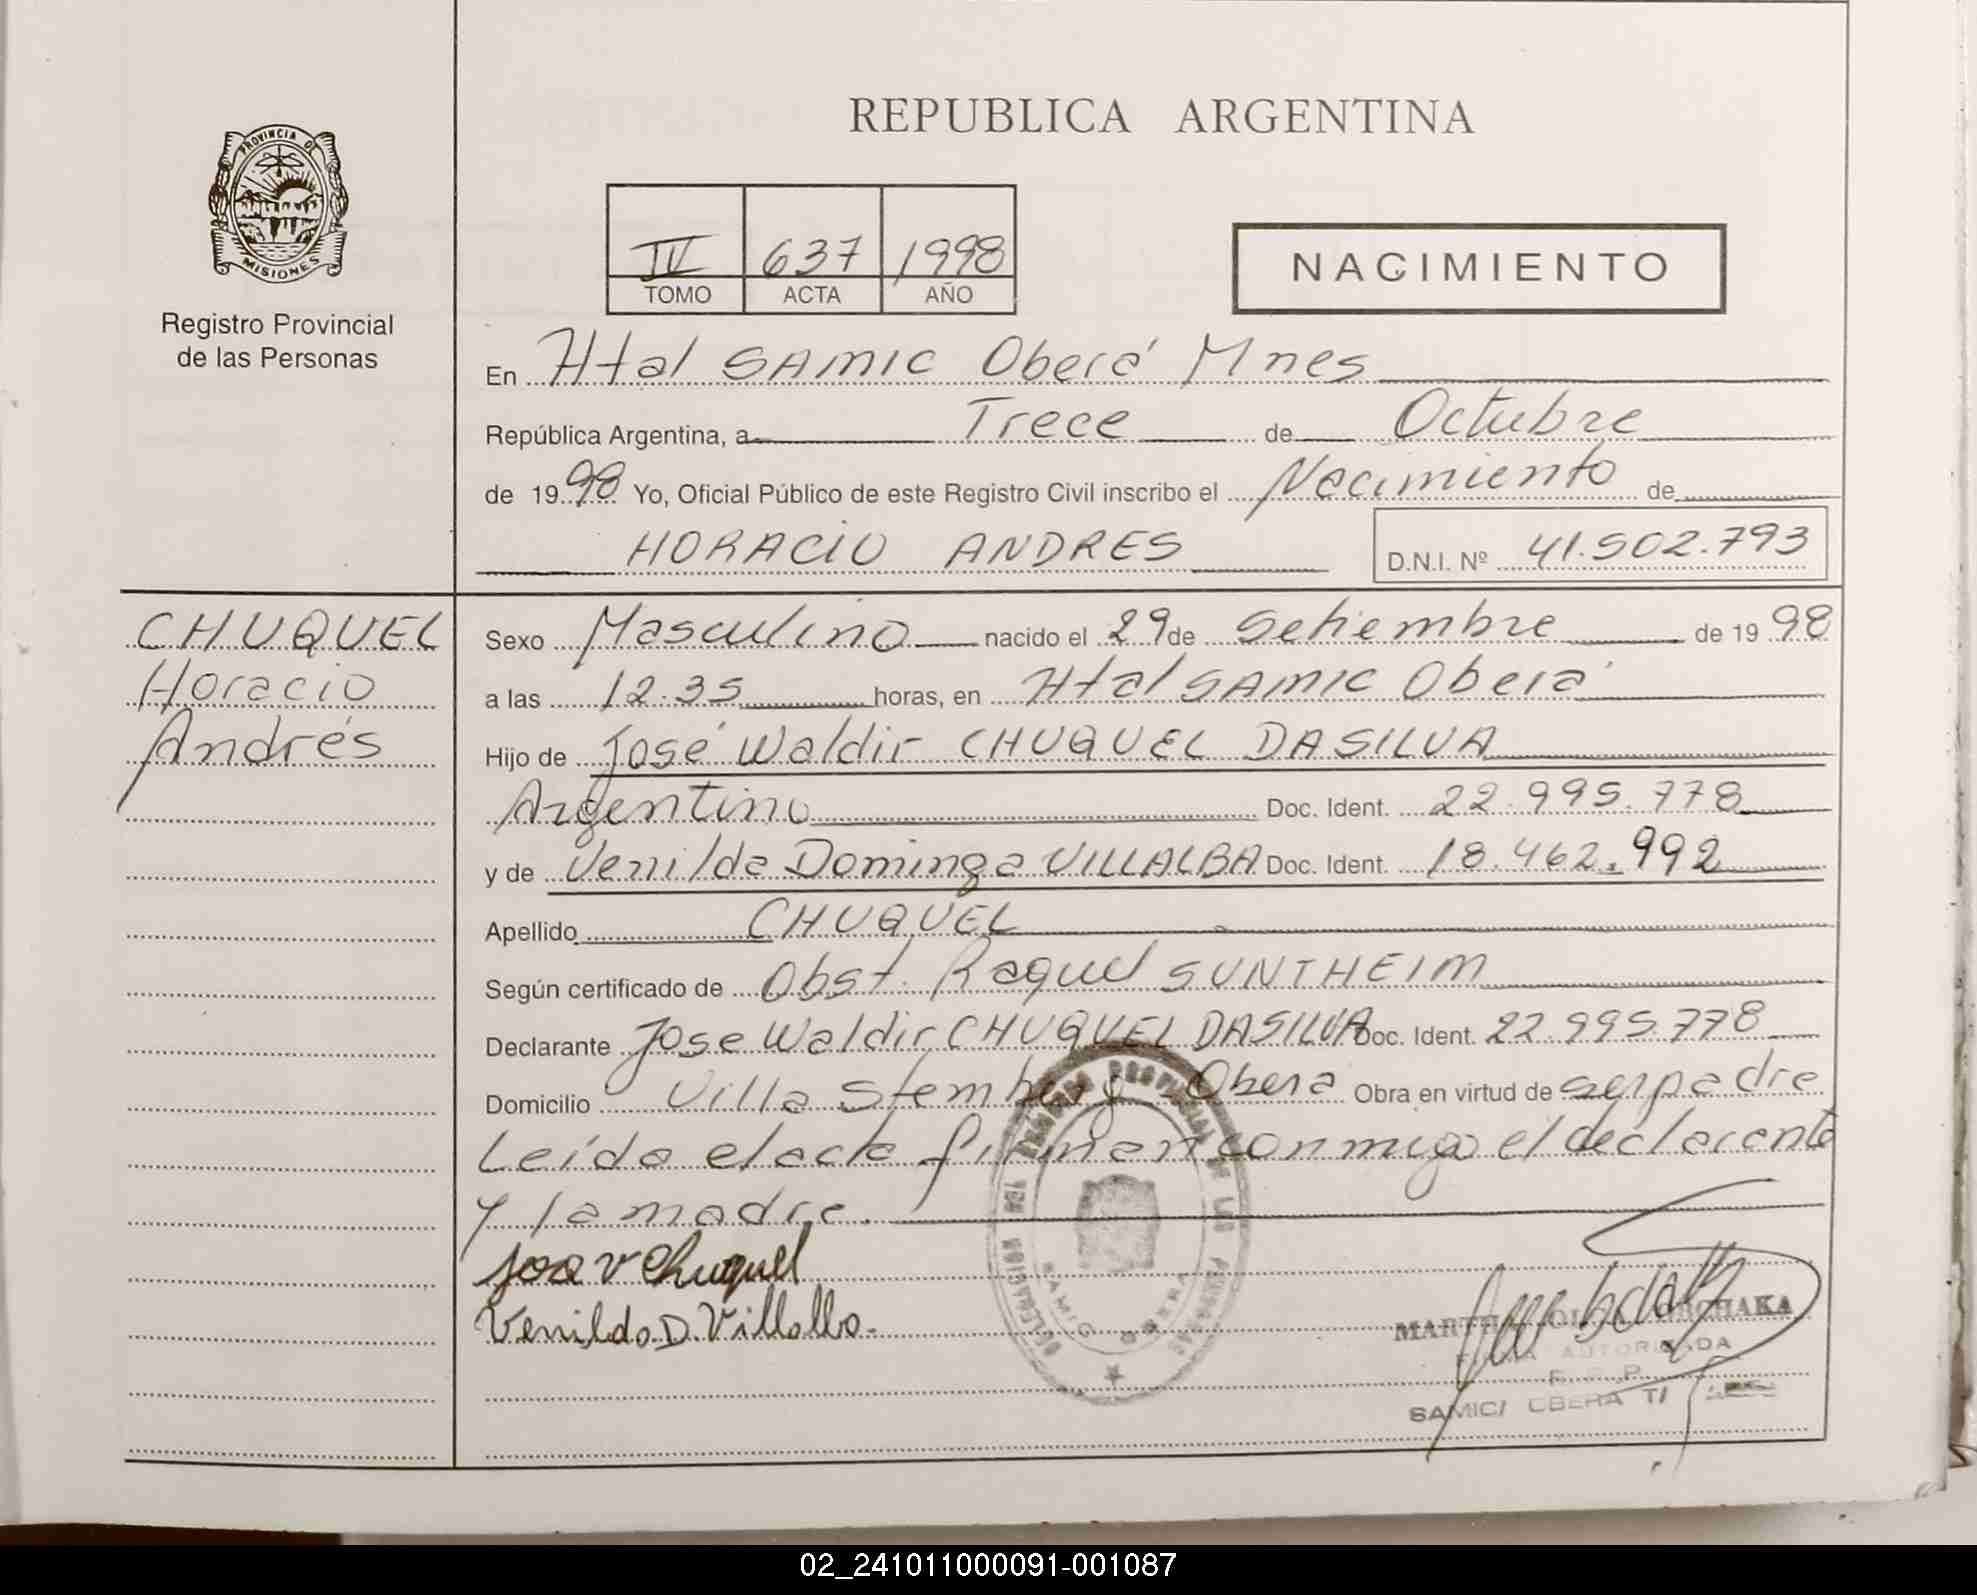 REPUBLICA ARGENTINA
PROVINCIA DE
MISIONES
Registro Provincial
de las Personas
IV 637 1998
TOMO ACTA AÑO
NACIMIENTO
En Htal SAMIC Oberá Mnes
República Argentina, a Trece de Octubre
de 1998 Yo, Oficial Público de este Registro Civil inscribo el Nacimiento de
HORACIO ANDRES D.N.I. Nº 41.502.793
CHUQUEL
Horacio
Andrés
Sexo Masculino nacido el 29 de Setiembre de 1998
a las 12.35 horas, en Htal SAMIC Oberá
Hijo de José Waldir CHUQUEL DASILVA
Argentino Doc. Ident. 22.995.778
y de Venilda Dominga VILLALBA Doc. Ident. 18.462.992
Apellido CHUQUEL
Según certificado de Obst. Raquel SUNTHEIM
Declarante Jose Waldir CHUQUEL DASILVA Doc. Ident. 22.995.778
Domicilio Villa Stemberg Obera Obra en virtud de ser padre
Leída el acta firman conmigo el declarante
y la madre.
Jose V Chuquel
Venilda D. Villalba.
MARTHA OLGA
AUTORIZADA
SAMIC/ OBERA
02_241011000091-001087